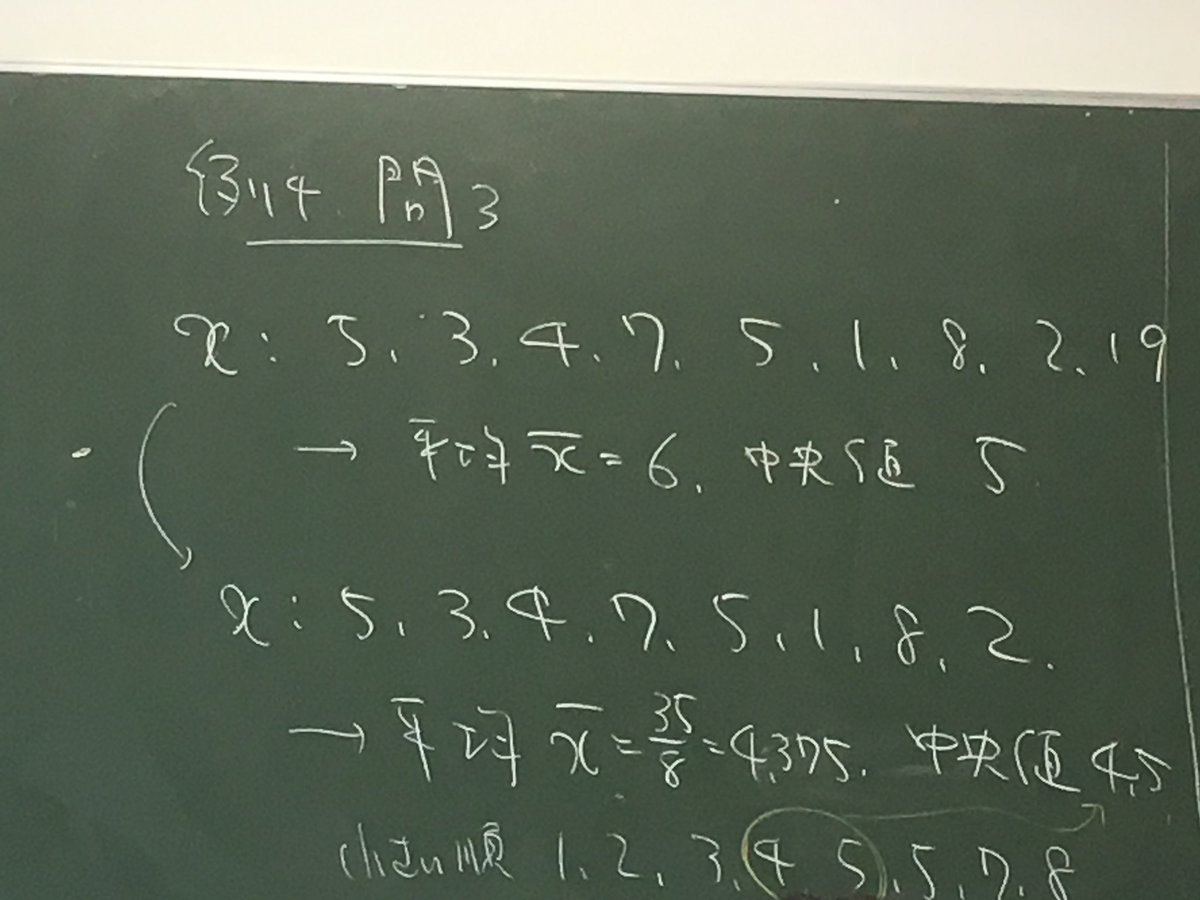 例4 問3
x: 5, 3, 4, 7, 5, 1, 8, 2, 19
→ 平均 x̄ = 6, 中央値 5
x: 5, 3, 4, 7, 5, 1, 8, 2.
→ 平均 x̄ = 35/8 = 4.375. 中央値 4.5
小さい順 1, 2, 3, 4 5, 5, 7, 8